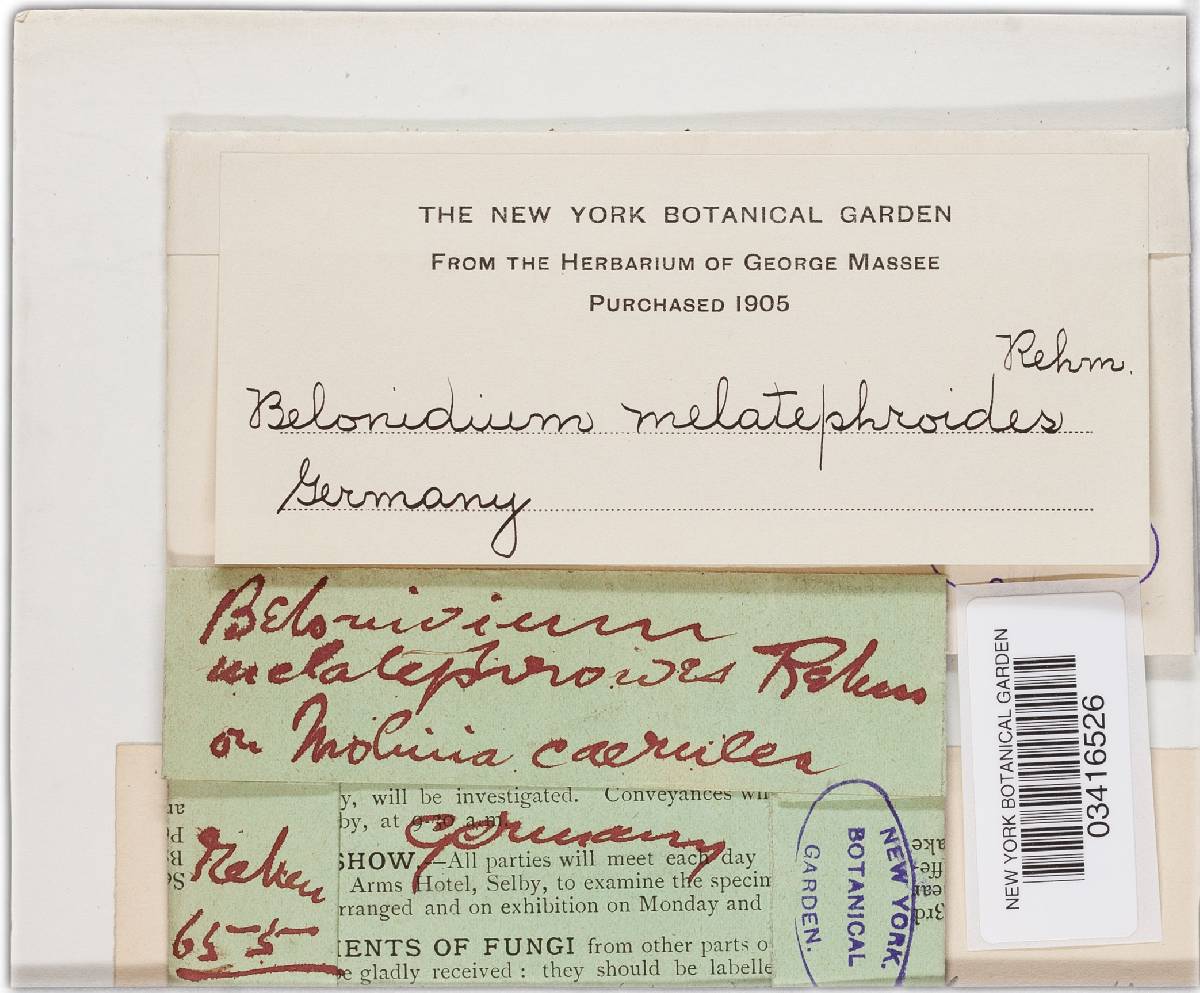 THE NEW YORK BOTANICAL GARDEN
FROM THE HERBARIUM OF GEORGE MASSEE
PURCHASED 1905
Rehm.
Belonidium melatephroides
Germany
Belonidium
melatephroides Rehm
on Molinia caerulea
y, will be investigated. Conveyances wil
by, at 9-30 a.m.
Germany
SHOW.—All parties will meet each day
Arms Hotel, Selby, to examine the specim
rranged and on exhibition on Monday and
IENTS OF FUNGI from other parts o
e gladly received: they should be labelle
Rehm
655
NEW YORK
BOTANICAL
GARDEN.
NEW YORK BOTANICAL GARDEN
03416526